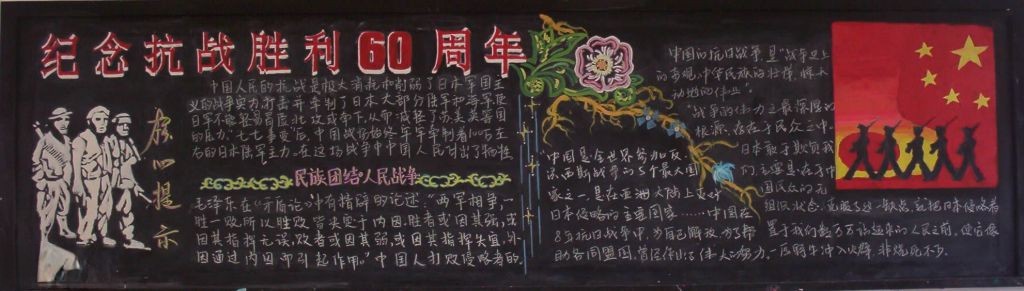 纪念抗战胜利60周年
中国人民的抗战是极大消耗和削弱了日本军国主
义的战争实力,打击并牵制了日本大部分陆军和海军使
日军不能轻易冒险北攻或南下,从而减轻了苏美英等国
的压力"七七事变"后,中国战场始终牢牢牵制着100万左
右的日本陆军主力。在这场战争中中国人民付出了牺牲
民族团结人民战争
毛泽东在"矛盾论"中有精辟的论述,"两军相争,一
胜一败,所以胜败皆决于内因,胜者或因其强,或
因其指挥无误,败者或因其弱,或因其指挥失宜,外
因通过内因而引起作用。"中国人打败侵略者的
中国是全世界参加反
法西斯战争的5个最大国
家之一,是在亚洲大陆上反对
日本侵略的主要国家……中国在
8年抗日战争中,为自己解放,为了帮
助各同盟国,曾经作出了伟大的努力。
中国的抗日战争,是"战争史上
的奇观,中华民族的壮举,惊天
动地的伟业"
"战争的伟力之最深厚的
根源,存在于民众之中。
日本敢于欺负我
们,主要是在于中
国民众的无
组织状态。克服了这一缺点,就把日本侵略者
置于我们数万万站起来的人民之前,使它像
一匹野牛冲入火阵,非烧死不可。